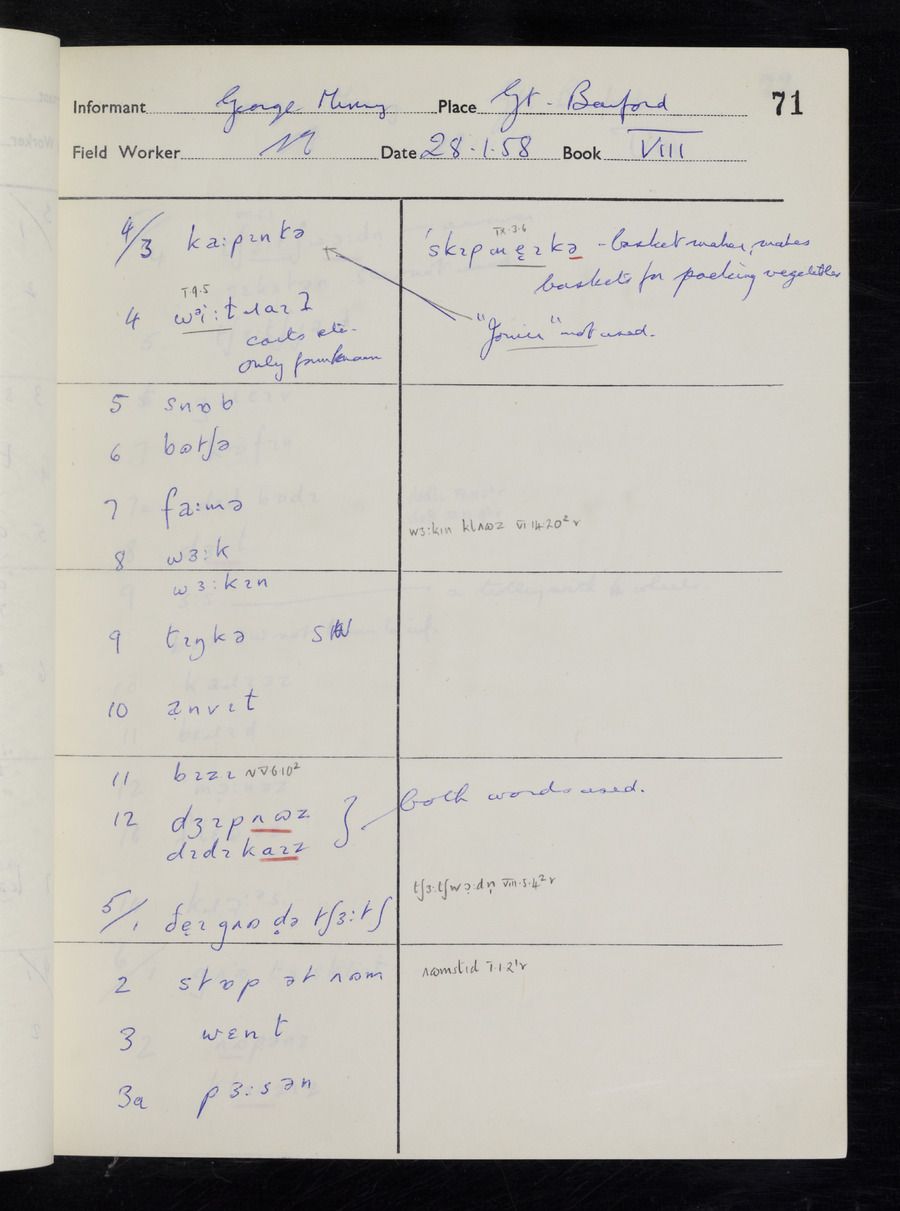 Informant George Place Gt. Barford 71
Field Worker Date 28.1.58 Book VIII
4/3 ka:pɪntə
'skɪp mẹɪkə - basket maker, makes
baskets for packing vegetables
IX.3.6
I.9.5
4 wəi:lʌaɪʔ
carts etc.
only
"Joiner" not used.
5 snɒb
6 bʊtʃə
7 fa:mə
8 wɜ:k
wɜ:kɪn klʌʊz VI 14.20² r
wɜ:kɪn
9 tɪŋkə SW
10 anvɪt
11 bɪzɪ V 6 10²
12 dʒɪpʌʊz
dɪdɪkaɪz
both words used.
tʃɜ:tʃwɔ:dn̩ VIII.5.4² r
5/1 ðẹɪ gʌʊ də tʃɜ:tʃ
2 stɒp ət ʌʊm
ʌʊmstɪd I.1.2¹r
3 wɛnt
3a pɜ:sən